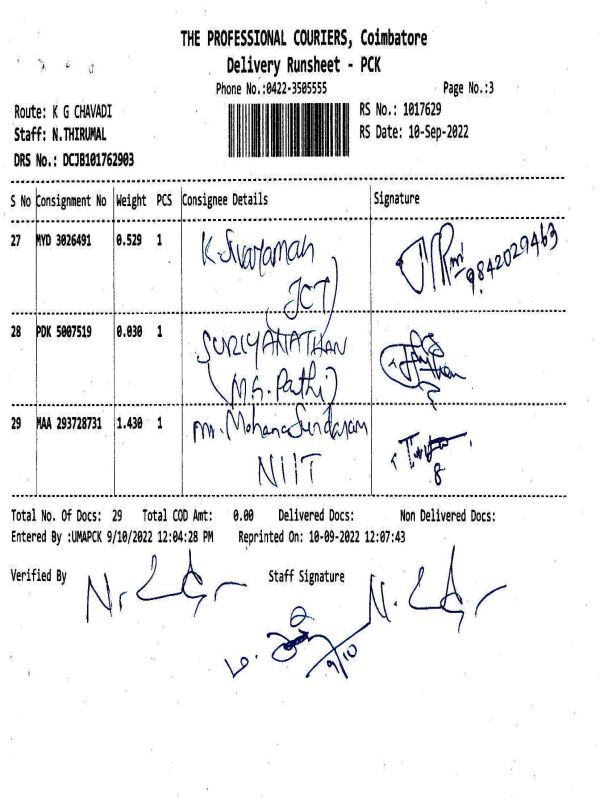 THE PROFESSIONAL COURIERS, Coimbatore
Delivery Runsheet - PCK
Phone No.:0422-3505555 Page No.:3
Route: K G CHAVADI RS No.: 1017629
Staff: N.THIRUMAL RS Date: 10-Sep-2022
DRS No.: DCJB101762903
S No Consignment No Weight PCS Consignee Details Signature
27 MYD 3026491 0.529 1 K. Sivaraman 9842029463
(JCT)
28 PDK 5007519 0.030 1 SURIYANATHAN
(M.G. Pathi)
29 MAA 293728731 1.430 1 Mr. Mohana Sundaram
NIIT 8
Total No. Of Docs: 29 Total COD Amt: 0.00 Delivered Docs: Non Delivered Docs:
Entered By :UMAPCK 9/10/2022 12:04:28 PM Reprinted On: 10-09-2022 12:07:43
Verified By Staff Signature
9/10